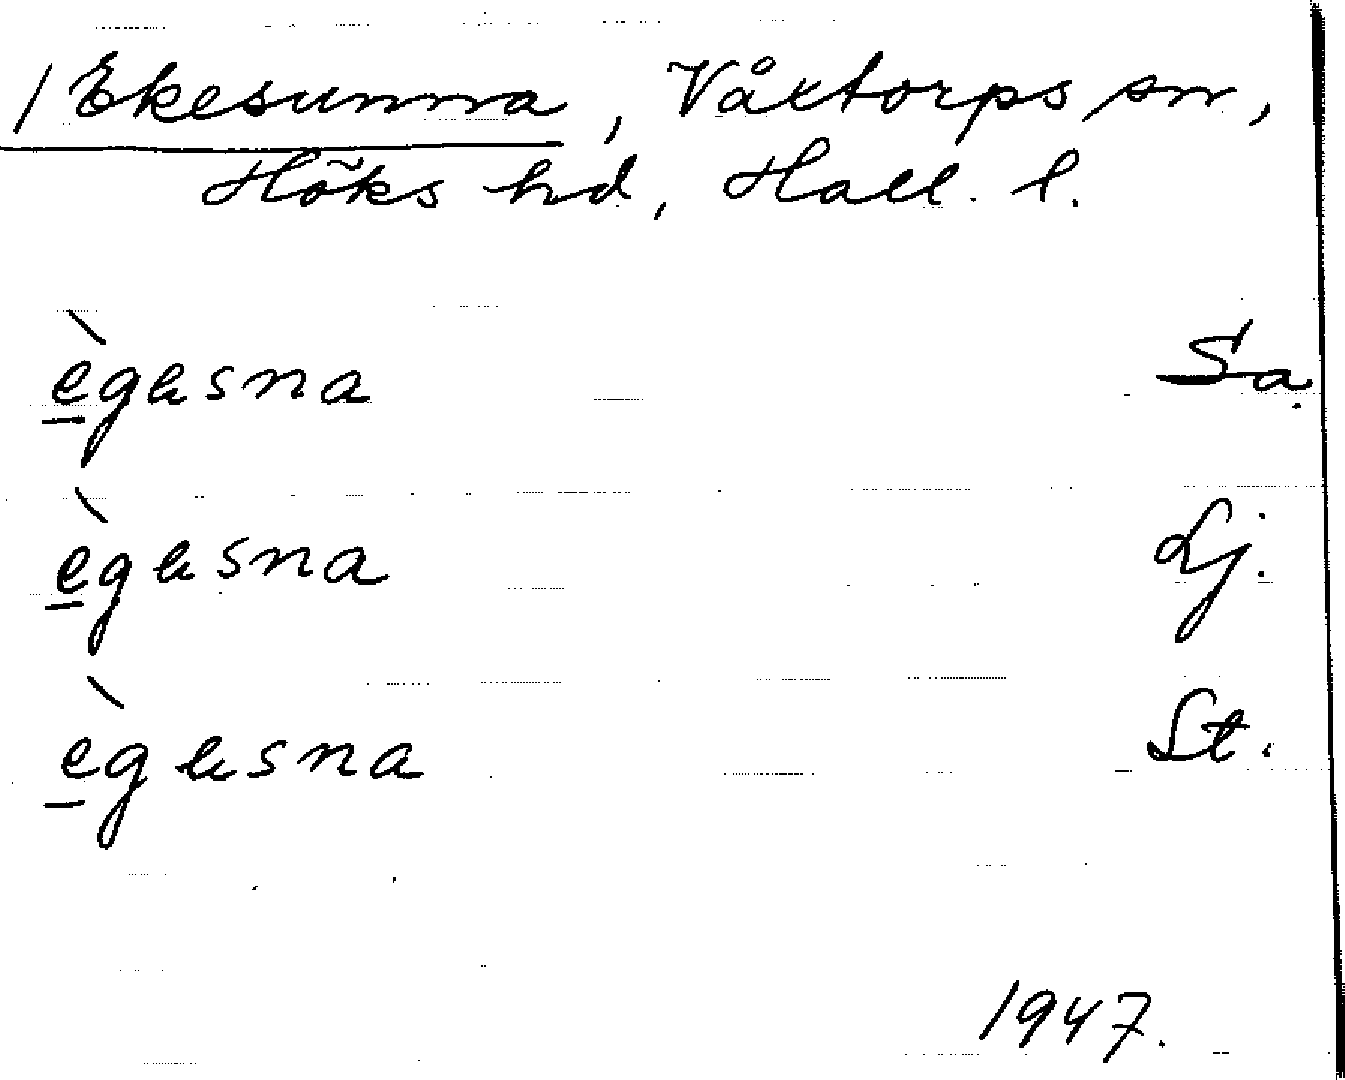 / Ekesunna, Våxtorps sn,
Höks hd, Hall. l.
ègesna Sa.
ègesna Lj.
ègesna St.
1947.